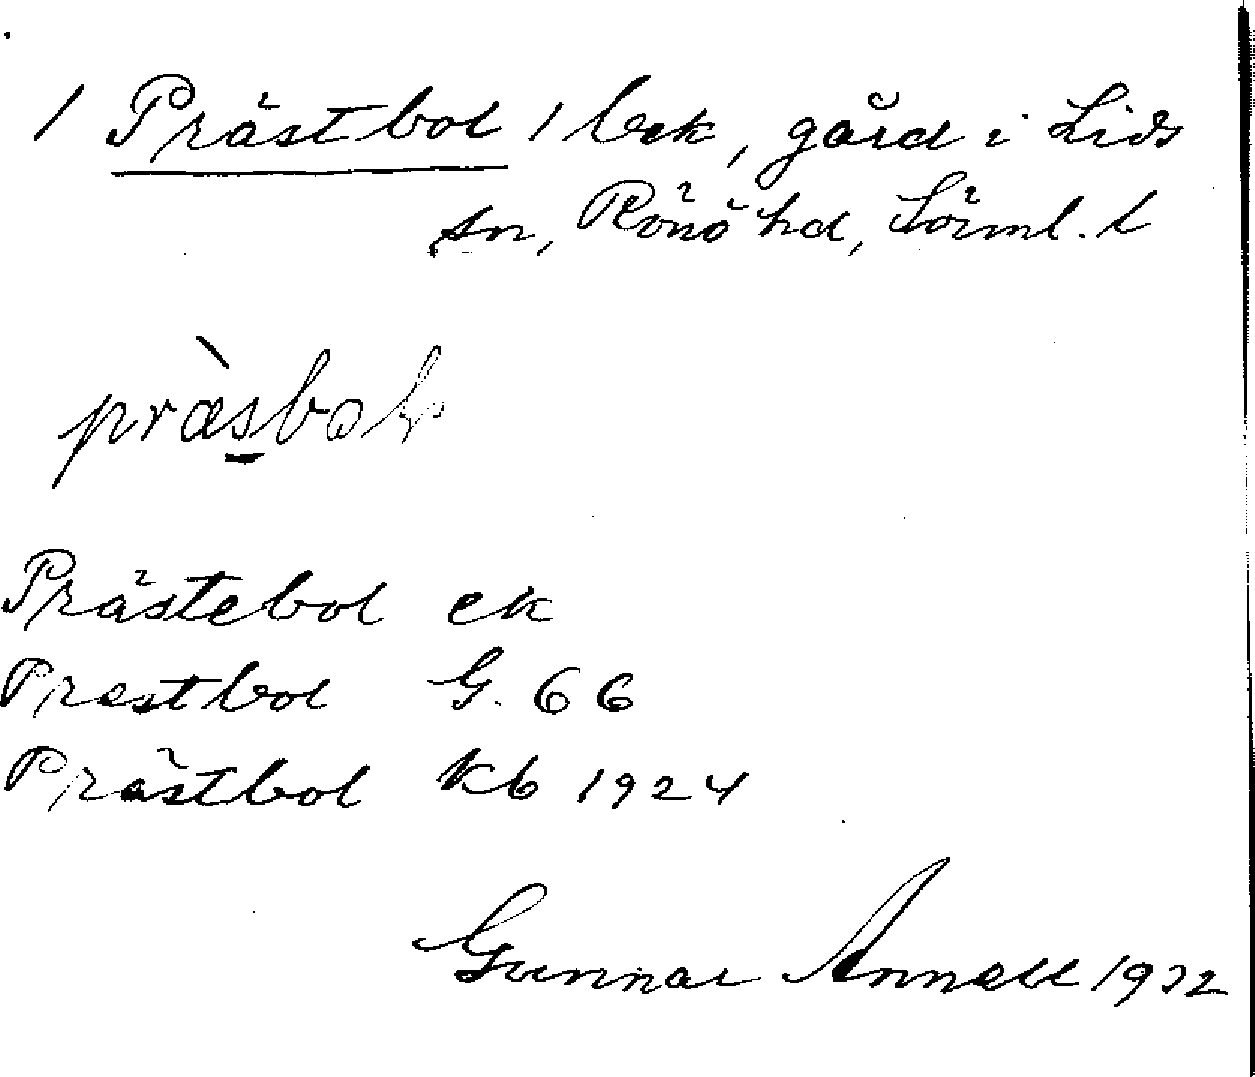 / Prästbol / bek, gård i Lids
sn, Rönö hd, Sörml. l
Prästebol ek
Prestbol G. 66
Prästbol kb 1924
Gunnar Annell 1932